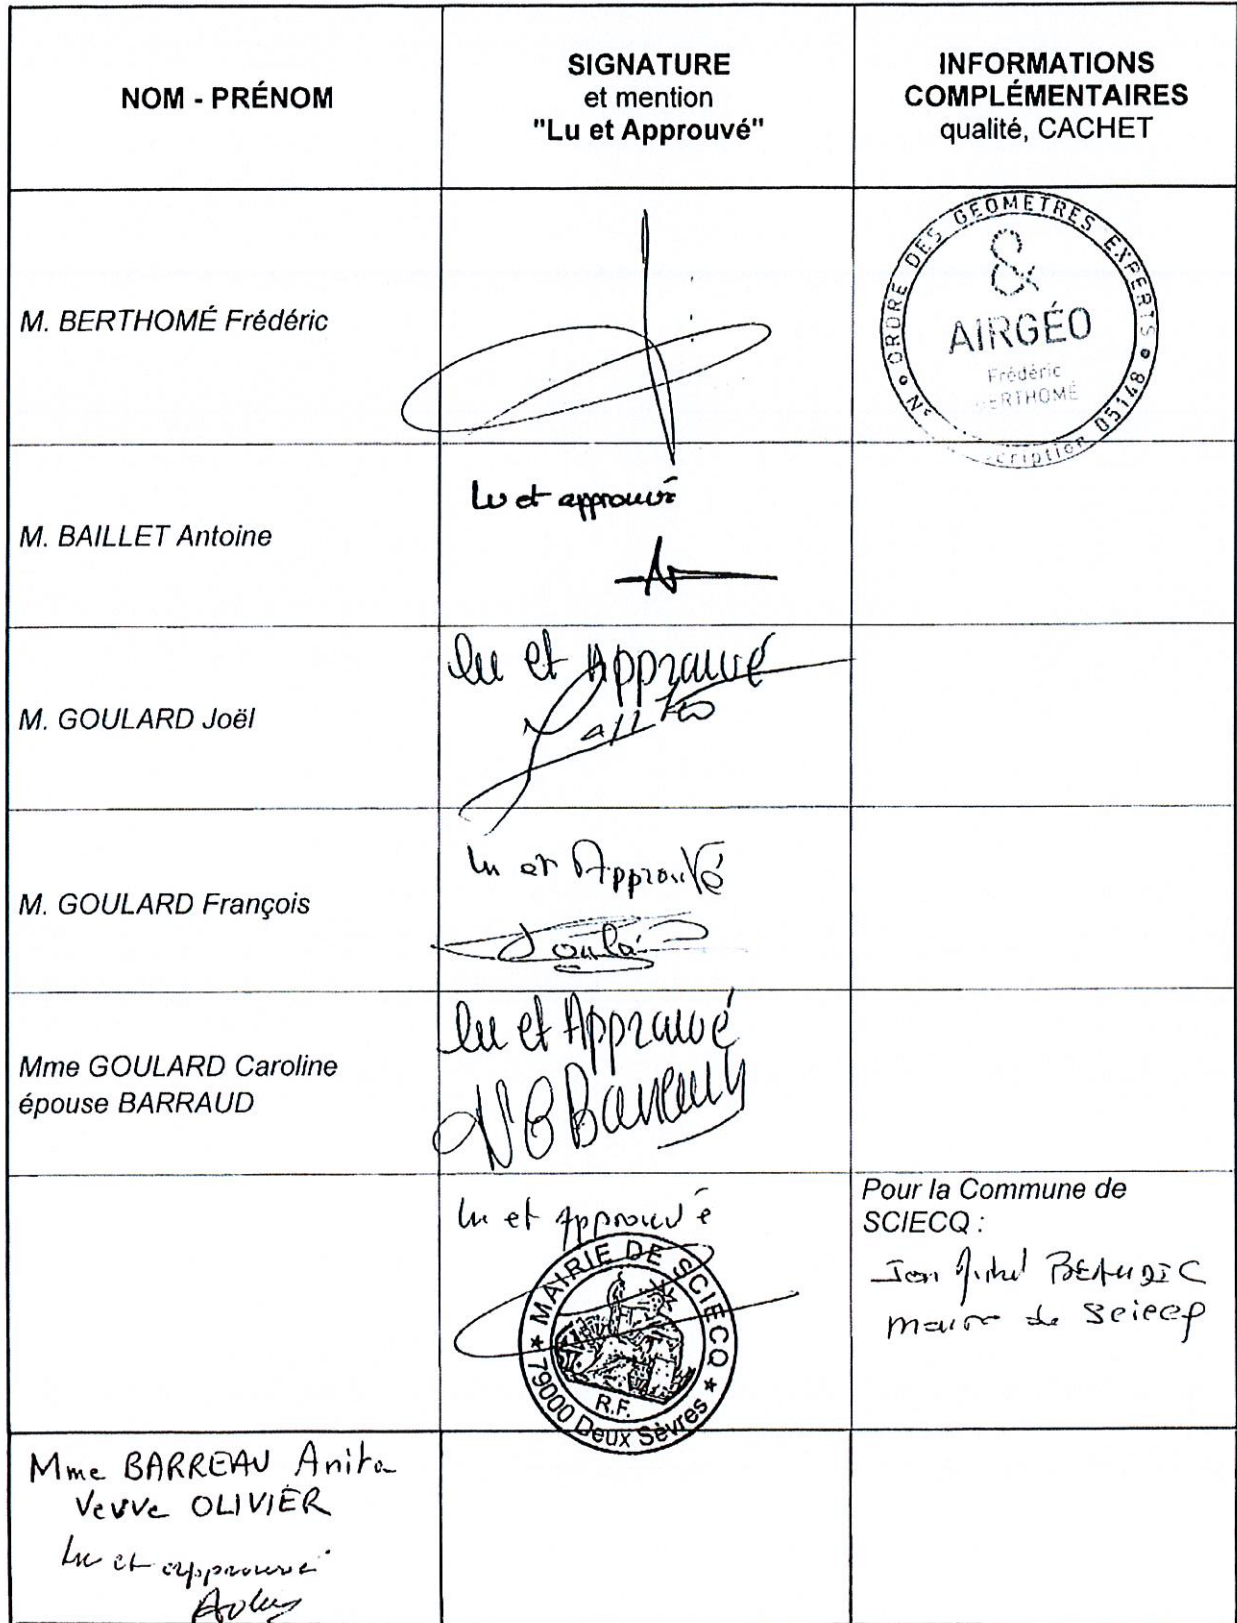 NOM - PRÉNOM
SIGNATURE
et mention
"Lu et Approuvé"
INFORMATIONS
COMPLÉMENTAIRES
qualité, CACHET
M. BERTHOMÉ Frédéric
ORDRE DES GEOMETRES EXPERTS
&
AIRGÉO
Frédéric
BERTHOMÉ
05148
M. BAILLET Antoine
Lu et approuvé
M. GOULARD Joël
lu et Approuvé
M. GOULARD François
Lu et Approuvé
Mme GOULARD Caroline
épouse BARRAUD
lu et Approuvé
Lu et approuvé
MAIRIE DE SCIECQ
R.F.
79000 Deux Sèvres
Pour la Commune de
SCIECQ :
maire de Sciecq
Mme BARREAU Anita
Veuve OLIVIER
Lu et approuvé